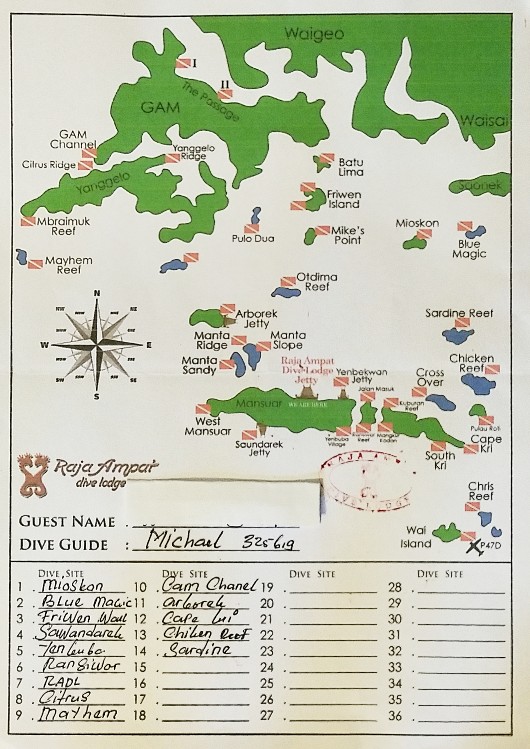 Waigeo
I
II
The Passage
GAM
Waisai
GAM
Channel
Citrus Ridge
Yanggelo
Ridge
Yanggelo
Batu
Lima
Saonek
Friwen
Island
Mbraimuk
Reef
Pulo Dua
Mike's
Point
Mioskon
Blue
Magic
Mayhem
Reef
Otdima
Reef
N
W
E
S
Arborek
Jetty
Sardine Reef
Manta
Ridge
Manta
Slope
Manta
Sandy
Raja Ampat
Dive Lodge
Jetty
Yenbekwan
Jetty
Cross
Over
Chicken
Reef
Jalan Masuk
Mansuar
WE ARE HERE
Kuburan
Reef
West
Mansuar
Pulau Roti
Saundarek
Jetty
Yenbuba
Village
Reef
Mangrove
South
Kri
Cape
Kri
Raja Ampat
dive lodge
Chris
Reef
Wai
Island
P47D
GUEST NAME :
DIVE GUIDE : Michael 325619
DIVE SITE DIVE SITE DIVE SITE DIVE SITE
1 . Mioskon 10 . Cam Chanel 19 . 28 .
2 . Blue Magic 11 . arborek 20 . 29 .
3 . Friwen Wall 12 . Cape kri 21 . 30 .
4 . Sawandarek 13 . Chiken Reef 22 . 31 .
5 . Yenbuba 14 . Sardine 23 . 32 .
6 . Ransiwor 15 . 24 . 33 .
7 . RADL 16 . 25 . 34 .
8 . Citrus 17 . 26 . 35 .
9 . Mayhem 18 . 27 . 36 .